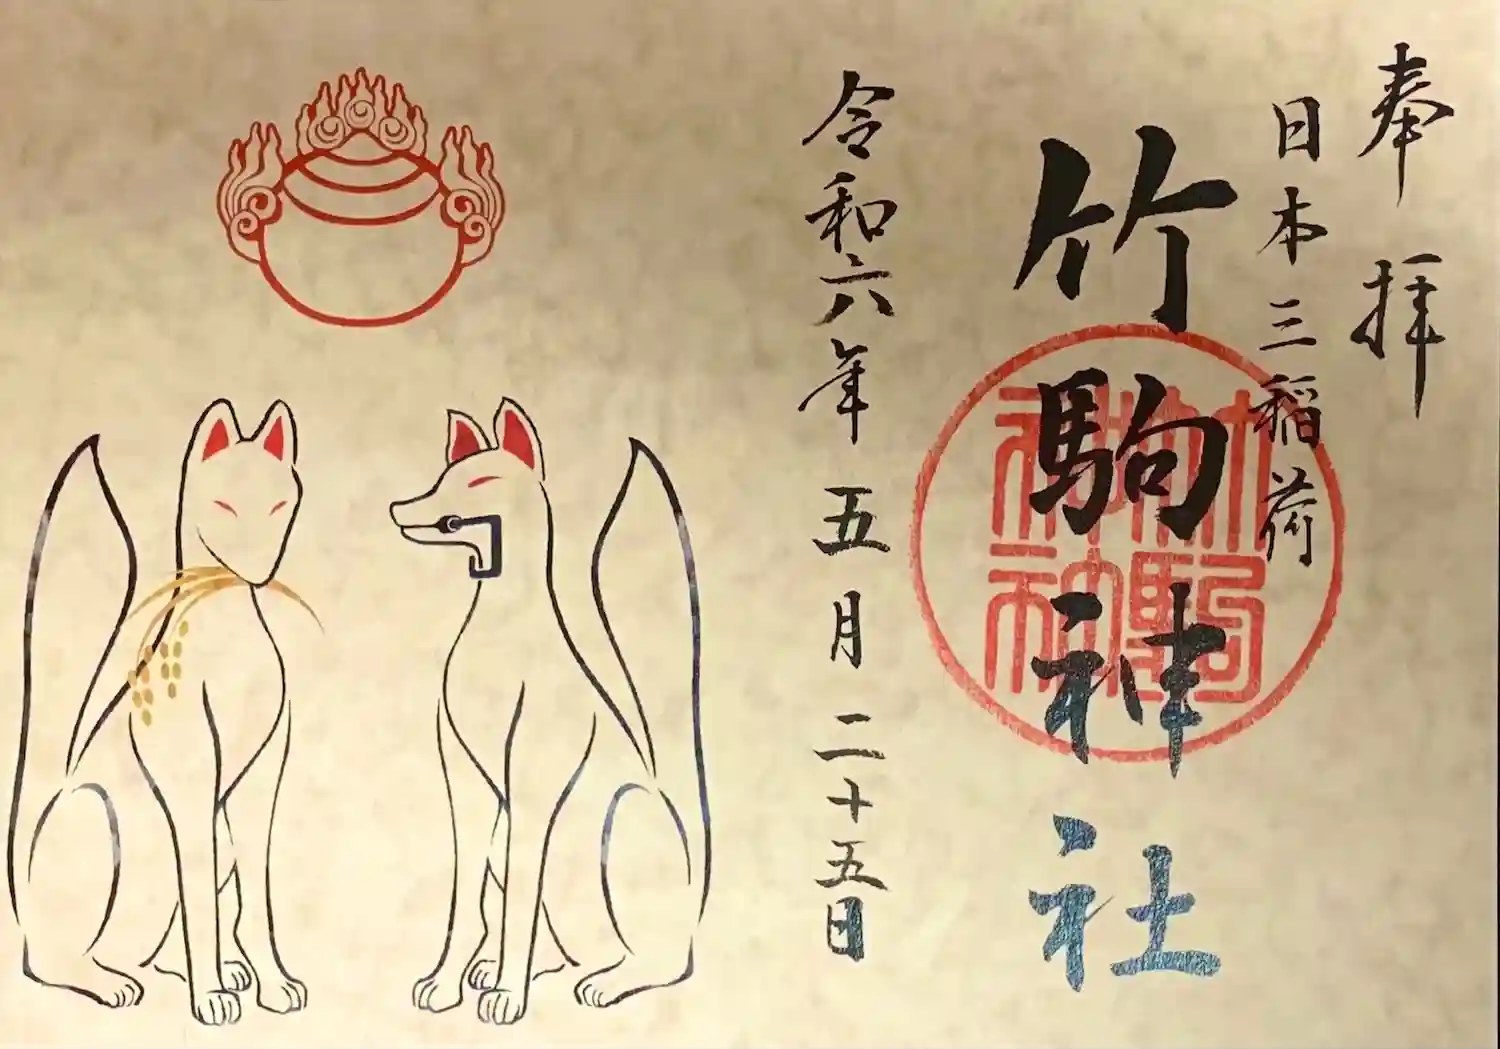 奉拝
日本三稲荷
竹駒神社
竹駒神社
令和六年五月二十五日